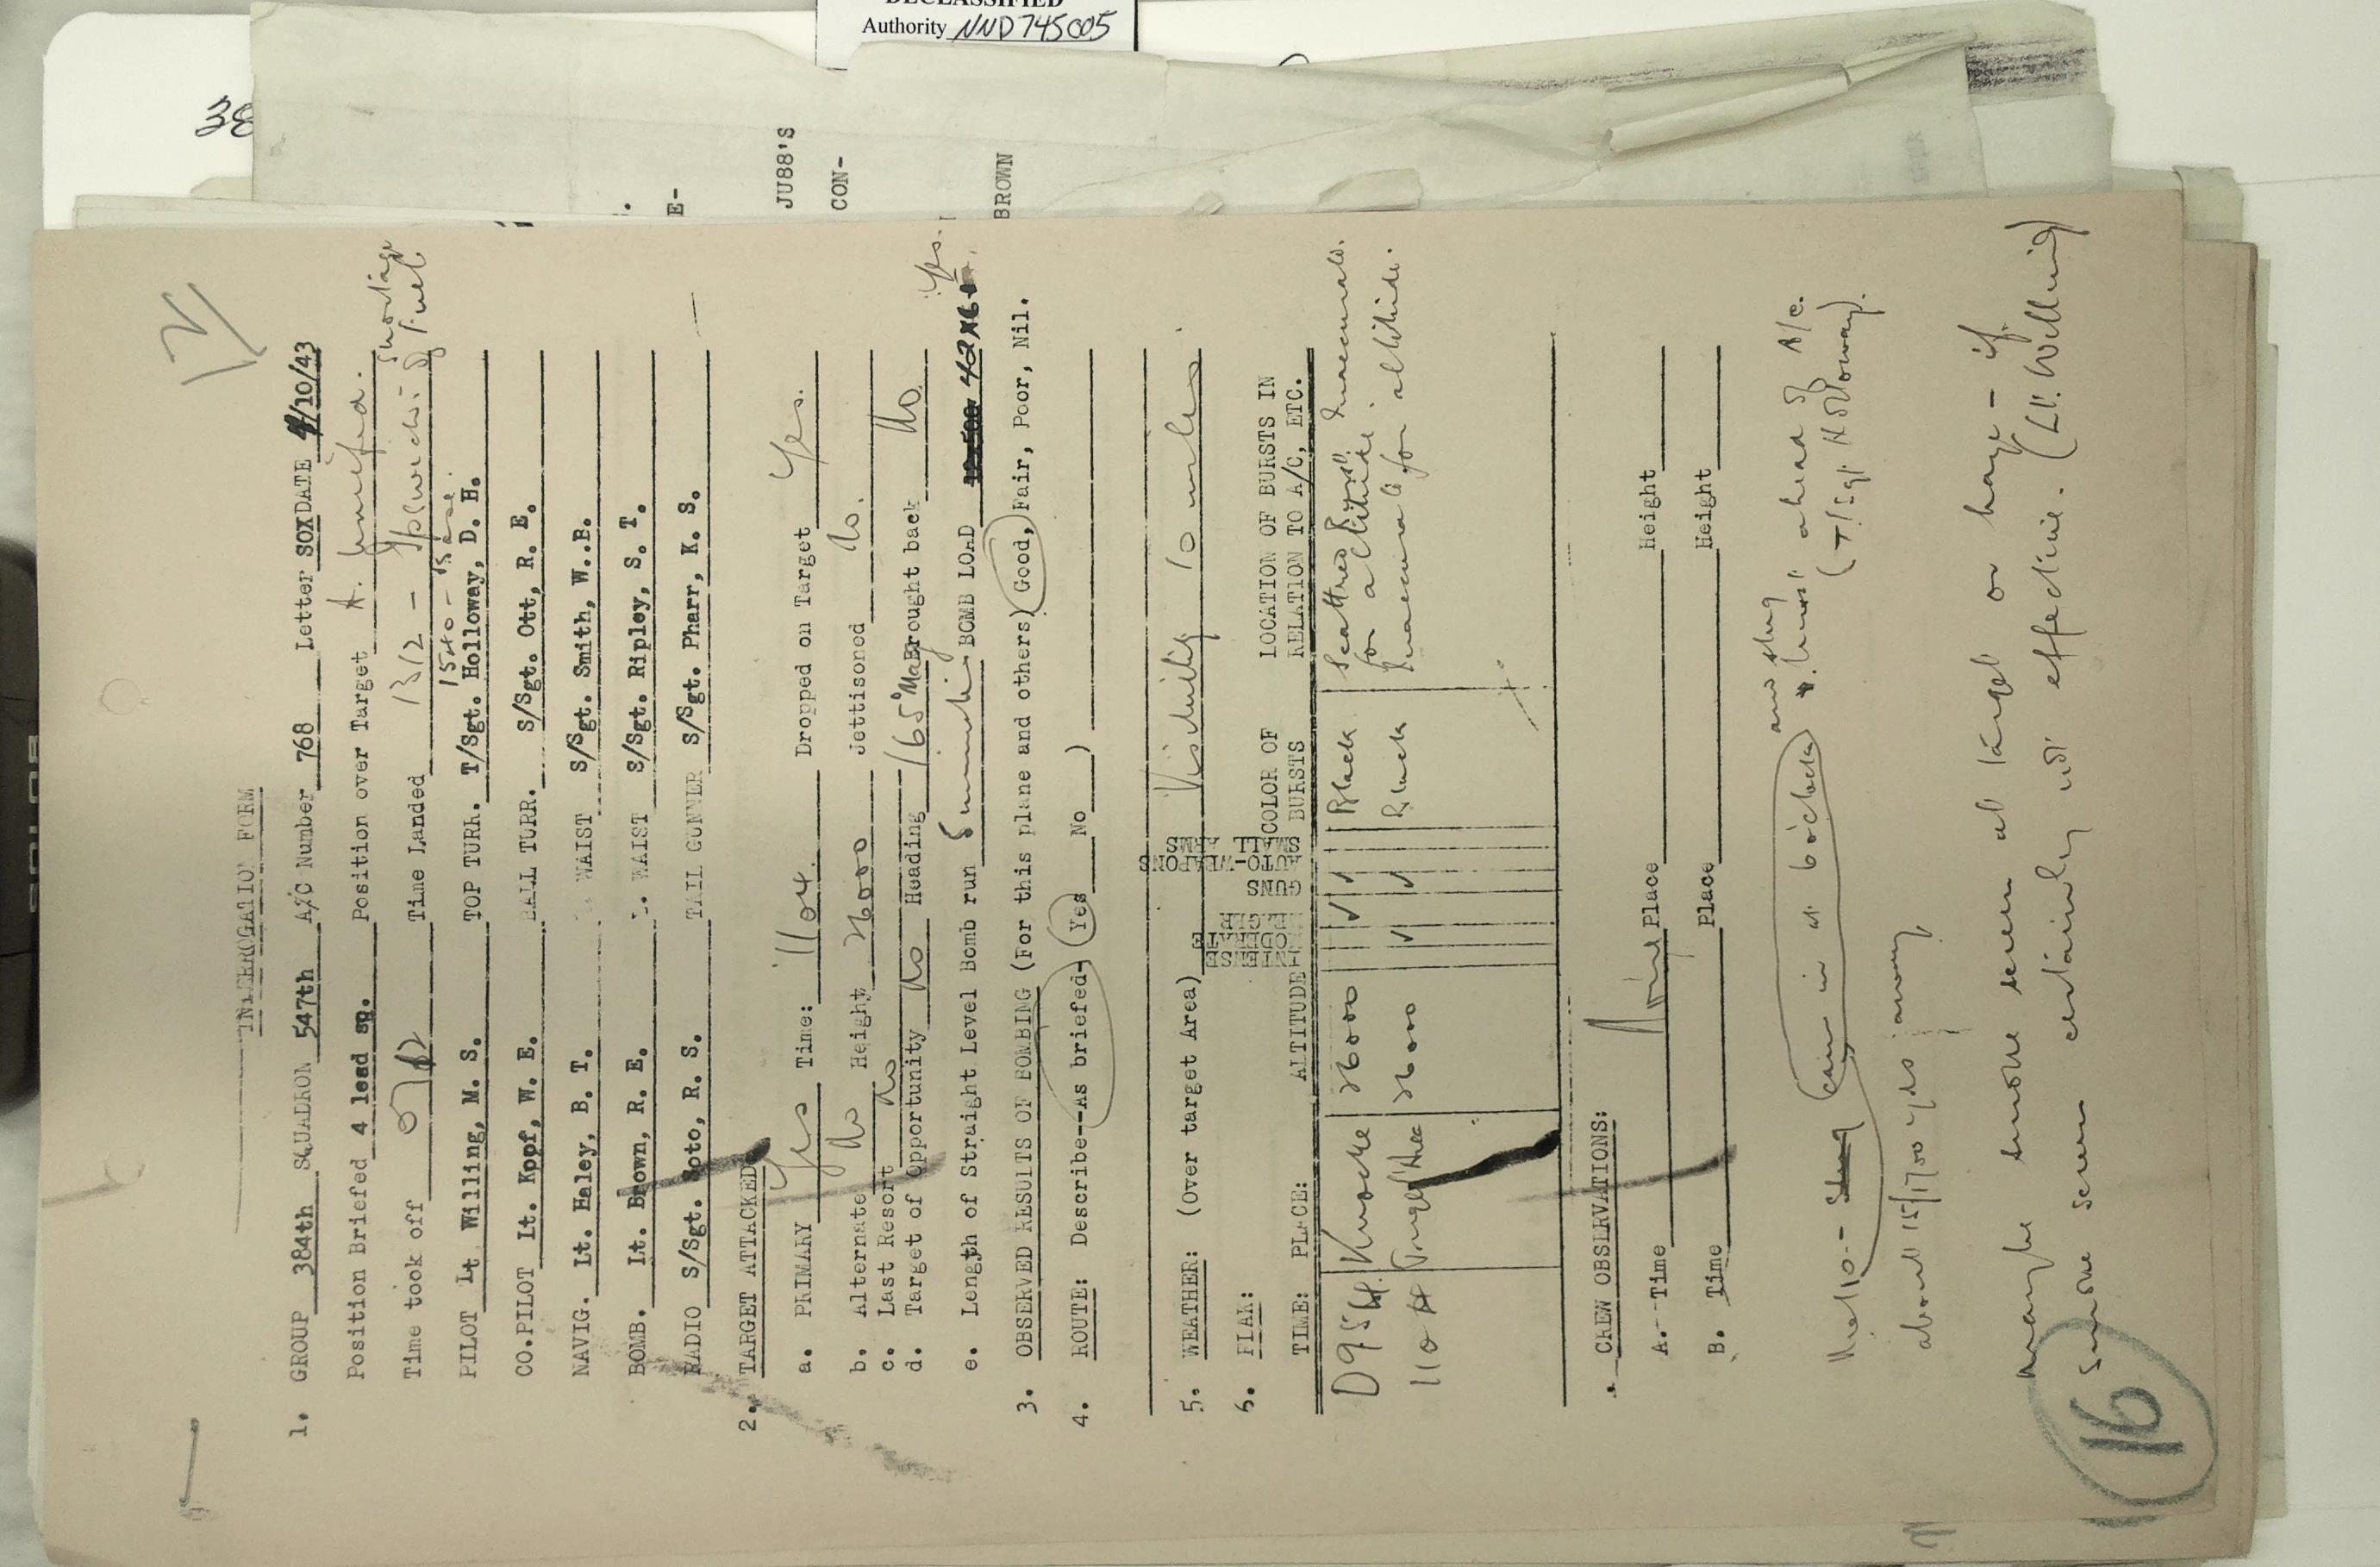 DECLASSIFIED
Authority NND 745005
38
E-
JU88'S
CON-
BROWN
INTERROGATION FORM
1. GROUP 384th SQUADRON 547th A/C Number 768 Letter SOX DATE 9/10/43
Position Briefed 4 lead sp. Position over Target As briefed.
Time took off Time Landed 1312 - Ipswich: Shortage of Fuel.
1540 - Base
PILOT Lt Willing, M. S. TOP TURR. T/Sgt. Holloway, D. H.
CO.PILOT Lt. Kopf, W. E. BALL TURR. S/Sgt. Ott, R. E.
NAVIG. Lt. Haley, B. T. WAIST S/Sgt. Smith, W..B.
BOMB. Lt. Brown, R. E. WAIST S/Sgt. Ripley, S. T.
RADIO S/Sgt. Soto, R. S. TAIL GUNNER S/Sgt. Pharr, K. S.
2. TARGET ATTACKED
a. PRIMARY Yes Time: 1104. Dropped on Target Yes.
b. Alternate No Height 26000 Jettisoned No.
c. Last Resort No Heading 165° Mag Brought back No.
d. Target of Opportunity No Yes.
e. Length of Straight Level Bomb run 5 minutes BOMB LOAD 42 X
3. OBSERVED RESULTS OF BOMBING (For this plane and others) Good, Fair, Poor, Nil.
4. ROUTE: Describe--As briefed- Yes No )
5. WEATHER: (Over target Area) Visibility 10 miles.
6. FLAK:
TIME: PLACE: ALTITUDE INTENSE MODERATE MEAGER GUNS AUTO-WEAPONS SMALL ARMS COLOR OF BURSTS LOCATION OF BURSTS IN RELATION TO A/C, ETC.
26000 ✓ ✓ Black Scattered Bursts. Inaccurate for altitude.
1104 Target Area 26000 ✓ ✓ Black Inaccurate for altitude.
CREW OBSERVATIONS:
A.--Time Place Height
B. Time Place Height
Me 110 - Came in at 6 o'clock and slung burst ahead of A/c.
about 15/1700 yds away (T/Sgt Holloway).
smoke seen at target or haze - if
smoke screen certainly not effective. (Lt. Willing)
16